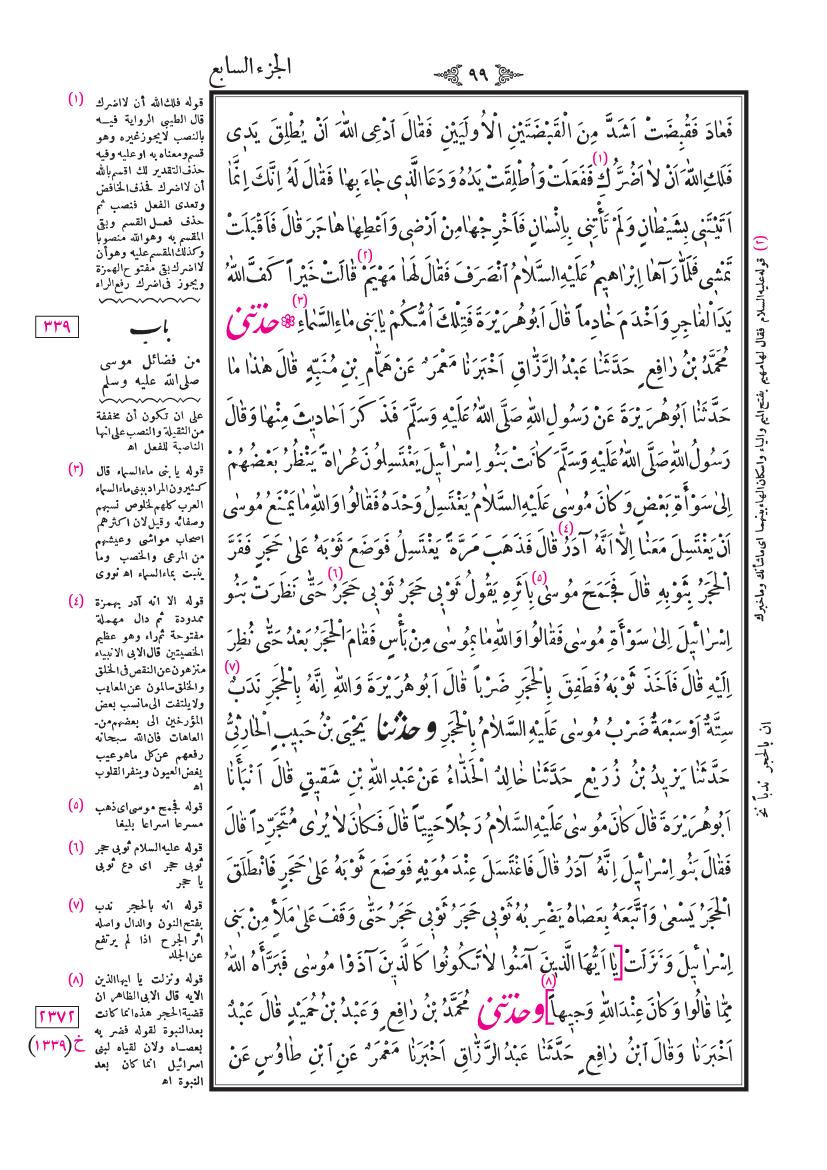 ٩٩
الجزء السابع
فَعَادَ فَقُبِضَتْ اَشَدَّ مِنَ الْقَبْضَتَيْنِ الْاُولَيَيْنِ فَقَالَ اَدْعِى اللهَ اَنْ يُطْلِقَ يَدِى
فَلَكِ اللهَ اَنْ لَا اَضُرَّكِ (١) فَفَعَلَتْ وَاُطْلِقَتْ يَدُهُ وَدَعَا الَّذِى جَاءَ بِهَا فَقَالَ لَهُ اِنَّكَ اِنَّمَا
اَتَيْتَنِى بِشَيْطَانٍ وَلَمْ تَأْتِنِى بِاِنْسَانٍ فَاَخْرِجْهَا مِنْ اَرْضِى وَاَعْطِهَا هَاجَرَ قَالَ فَاَقْبَلَتْ
تَمْشِى فَلَمَّا رَآهَا اِبْرَاهِيمُ عَلَيْهِ السَّلَامُ انْصَرَفَ فَقَالَ لَهَا مَهْيَمْ (٢) قَالَتْ خَيْراً كَفَّ اللهُ
يَدَ الْفَاجِرِ وَاَخْدَمَ خَادِماً قَالَ اَبُو هُرَيْرَةَ فَتِلْكَ اُمُّكُمْ يَا بَنِى مَاءِ السَّمَاءِ (٣) ❁ حَدَّثَنِى
مُحَمَّدُ بْنُ رَافِعٍ حَدَّثَنَا عَبْدُ الرَّزَّاقِ اَخْبَرَنَا مَعْمَرٌ عَنْ هَمَّامِ بْنِ مُنَبِّهٍ قَالَ هٰذَا مَا
حَدَّثَنَا اَبُو هُرَيْرَةَ عَنْ رَسُولِ اللهِ صَلَّى اللهُ عَلَيْهِ وَسَلَّمَ فَذَكَرَ اَحَادِيثَ مِنْهَا وَقَالَ
رَسُولُ اللهِ صَلَّى اللهُ عَلَيْهِ وَسَلَّمَ كَانَتْ بَنُو اِسْرَائِيلَ يَغْتَسِلُونَ عُرَاةً يَنْظُرُ بَعْضُهُمْ
اِلىٰ سَوْأَةِ بَعْضٍ وَكَانَ مُوسىٰ عَلَيْهِ السَّلَامُ يَغْتَسِلُ وَحْدَهُ فَقَالُوا وَاللهِ مَا يَمْنَعُ مُوسىٰ
اَنْ يَغْتَسِلَ مَعَنَا اِلَّا اَنَّهُ آدَرُ (٤) قَالَ فَذَهَبَ مَرَّةً يَغْتَسِلُ فَوَضَعَ ثَوْبَهُ عَلىٰ حَجَرٍ فَفَرَّ
الْحَجَرُ بِثَوْبِهِ قَالَ فَجَمَحَ مُوسىٰ (٥) بِاَثَرِهِ يَقُولُ ثَوْبِى حَجَرُ ثَوْبِى حَجَرُ (٦) حَتّٰى نَظَرَتْ بَنُو
اِسْرَائِيلَ اِلىٰ سَوْأَةِ مُوسىٰ فَقَالُوا وَاللهِ مَا بِمُوسىٰ مِنْ بَأْسٍ فَقَامَ الْحَجَرُ بَعْدُ حَتّٰى نُظِرَ
اِلَيْهِ قَالَ فَاَخَذَ ثَوْبَهُ فَطَفِقَ بِالْحَجَرِ ضَرْباً قَالَ اَبُو هُرَيْرَةَ وَاللهِ اِنَّهُ بِالْحَجَرِ نَدَبٌ (٧)
سِتَّةٌ اَوْ سَبْعَةٌ ضَرْبُ مُوسىٰ عَلَيْهِ السَّلَامُ بِالْحَجَرِ وحدّثنا يَحْيَى بْنُ حَبِيبٍ الْحَارِثِىُّ
حَدَّثَنَا يَزِيدُ بْنُ زُرَيْعٍ حَدَّثَنَا خَالِدٌ الْحَذَّاءُ عَنْ عَبْدِ اللهِ بْنِ شَقِيقٍ قَالَ اَنْبَأَنَا
اَبُو هُرَيْرَةَ قَالَ كَانَ مُوسىٰ عَلَيْهِ السَّلَامُ رَجُلاً حَيِيّاً قَالَ فَكَانَ لَا يُرىٰ مُتَجَرِّداً قَالَ
فَقَالَ بَنُو اِسْرَائِيلَ اِنَّهُ آدَرُ قَالَ فَاغْتَسَلَ عِنْدَ مُوَيْهٍ فَوَضَعَ ثَوْبَهُ عَلىٰ حَجَرٍ فَانْطَلَقَ
الْحَجَرُ يَسْعىٰ وَاتَّبَعَهُ بِعَصَاهُ يَضْرِبُهُ ثَوْبِى حَجَرُ ثَوْبِى حَجَرُ حَتّٰى وَقَفَ عَلىٰ مَلَأٍ مِنْ بَنِى
اِسْرَائِيلَ وَنَزَلَتْ [يَا اَيُّهَا الَّذِينَ آمَنُوا لَا تَكُونُوا كَالَّذِينَ آذَوْا مُوسىٰ فَبَرَّأَهُ اللهُ
مِمَّا قَالُوا وَكَانَ عِنْدَ اللهِ وَجِيهاً] (٨) وحدّثنى مُحَمَّدُ بْنُ رَافِعٍ وَعَبْدُ بْنُ حُمَيْدٍ قَالَ عَبْدٌ
اَخْبَرَنَا وَقَالَ ابْنُ رَافِعٍ حَدَّثَنَا عَبْدُ الرَّزَّاقِ اَخْبَرَنَا مَعْمَرٌ عَنِ ابْنِ طَاوُسٍ عَنْ
(١) قوله فلك الله أن لا اضرك
قال الطيبى الرواية فيه
بالنصب لا يجوز غيره وهو
قسم ومعناه به او عليه وفيه
حذف التقدير لك اقسم بالله
أن لا اضرك فحذف الخافض
وتعدى الفعل فنصب ثم
حذف فعل القسم وبقى
المقسم به وهو الله منصوبا
وكذلك المقسم عليه وهو أن
لا اضرك بقى مفتوح الهمزة
ويجوز فى اضرك رفع الراء
باب
٣٣٩
من فضائل موسى
صلى الله عليه وسلم
على ان تكون أن مخففة
من الثقيلة والنصب على انها
الناصبة للفعل اه
(٣) قوله يا بنى ماء السماء قال
كثيرون المراد ببنى ماء السماء
العرب كلهم لخلوص نسبهم
وصفائه وقيل لان اكثرهم
اصحاب مواشى وعيشهم
من المرعى والخصب وما
ينبت بماء السماء اه نووى
(٤) قوله الا انه آدر بهمزة
ممدودة ثم دال مهملة
مفتوحة ثم راء وهو عظيم
الخصيتين قال الابى الانبياء
منزهون عن النقص فى الخلق
والخلق سالمون عن المعايب
ولا يلتفت الى ما نسب بعض
المؤرخين الى بعضهم من
العاهات فان الله سبحانه
رفعهم عن كل ما هو عيب
يغض العيون وينفر القلوب
اه
(٥) قوله فجمح موسى اى ذهب
مسرعا اسراعا بليغا
(٦) قوله عليه السلام ثوبى حجر
ثوبى حجر اى دع ثوبى
يا حجر
(٧) قوله انه بالحجر ندب
بفتح النون والدال واصله
اثر الجرح اذا لم يرتفع
عن الجلد
(٨) قوله ونزلت يا ايها الذين
الايه قال الابى الظاهر ان
قضية الحجر هذه انما كانت
بعد النبوة لقوله فضربه
بعصاه ولان لقياه لبنى
اسرائيل انما كان بعد
النبوة اه
٢٣٧٢
خ (١٣٣٩)
(٢) قوله عليه السلام فقال لها مهيم بفتح الميم والياء واسكان الهاء بينهما اى ما شأنك وما خبرك
ان بالحجر ندباً نخ